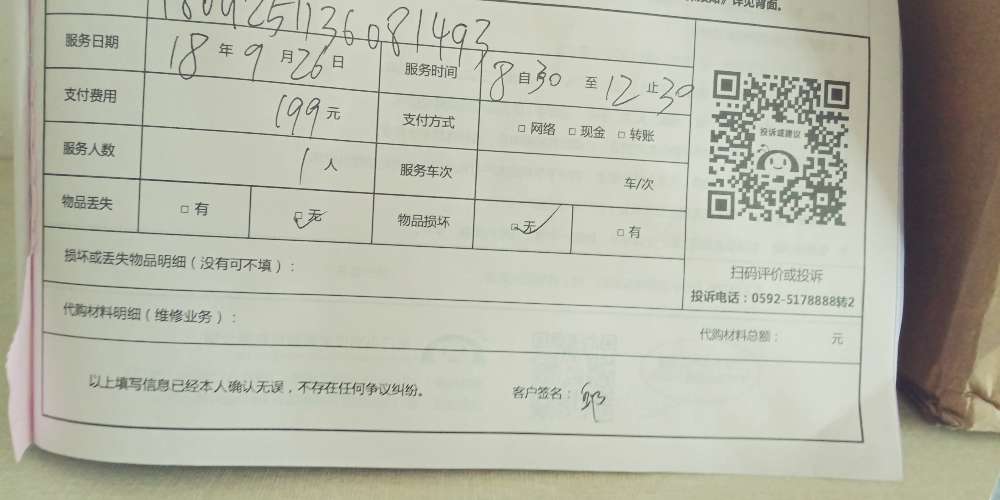 详见背面。
1809251136081493
服务日期 18年9月26日 服务时间 8自30至12止30
支付费用 199元 支付方式 □网络 □现金 □转账
投诉或建议
服务人数 1人 服务车次 车/次
物品丢失 □有 □无 物品损坏 □无 □有
损坏或丢失物品明细（没有可不填）：
扫码评价或投诉
投诉电话：0592-5178888转2
代购材料明细（维修业务）： 代购材料总额： 元
以上填写信息已经本人确认无误，不存在任何争议纠纷。 客户签名：